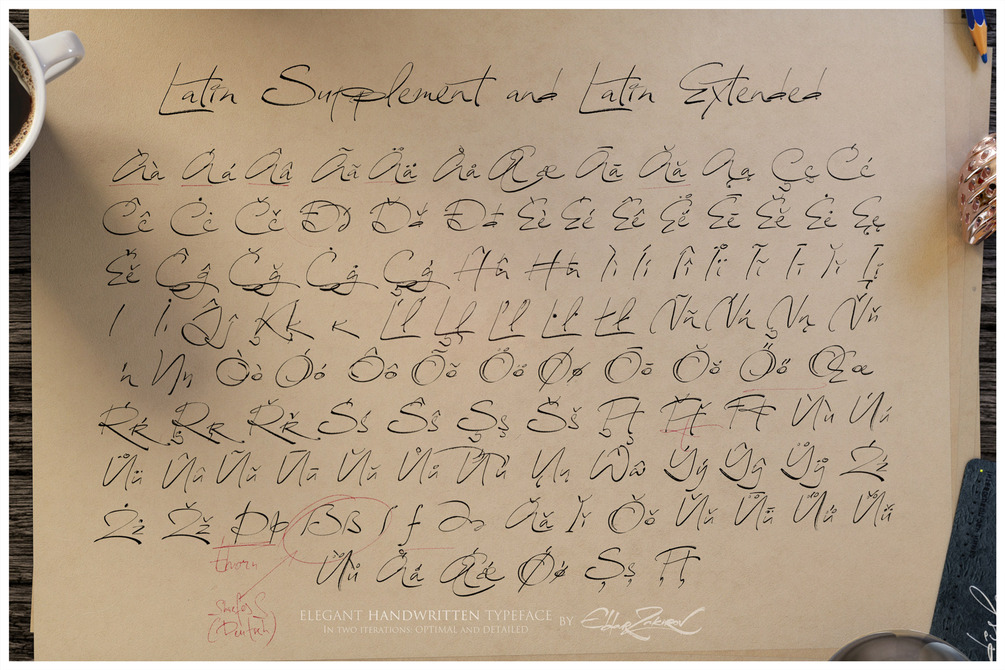 Latin Supplement and Latin Extended
Àà Áá Ââ Ãã Ää Åå Ææ Āā Ăă Ąą Çç Ćć
Ĉĉ Ċċ Čč Ðð Ďď Đđ Èè Éé Êê Ëë Ēē Ĕĕ Ėė Ęę
Ěě Ĝĝ Ğğ Ġġ Ģģ Ĥĥ Ħħ Ìì Íí Îî Ïï Ĩĩ Īī Ĭĭ Įį
ı İi Ĵĵ Ķķ ĸ Ĺĺ Ļļ Ľľ Ŀŀ Łł Ññ Ńń Ņņ Ňň
ŉ Ŋŋ Òò Óó Ôô Õõ Öö Øø Ōō Ŏŏ Őő Œœ
Ŕŕ Ŗŗ Řř Śś Ŝŝ Şş Šš Ţţ Ťť Ŧŧ Ùù Úú
Üü Ûû Ũũ Ūū Ŭŭ Ůů Űű Ųų Ŵŵ Ýý Ŷŷ Ÿÿ Źź
Żż Žž Þþ ẞß ſ ƒ Əə Ǎǎ Ǐǐ Ǒǒ Ǔǔ Ǖǖ Ǘǘ Ǚǚ
Ǜǜ Ǻǻ Ǽǽ Ǿǿ Șș Țț
thorn
(Deutsch)
ELEGANT HANDWRITTEN TYPEFACE BY Eldar Zakirov
IN TWO ITERATIONS: OPTIMAL AND DETAILED